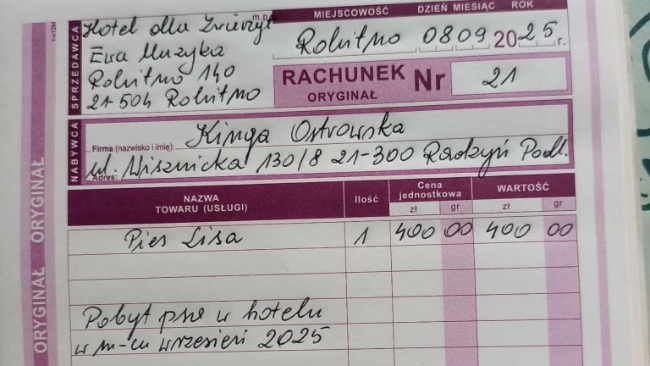 MIEJSCOWOŚĆ DZIEŃ MIESIĄC ROK
Rokitno 08 09 2025 r.
SPRZEDAWCA
Hotel dla Zwierząt
Ewa Muzyka
Rokitno 140
21-504 Rokitno
RACHUNEK Nr 21
ORYGINAŁ
NABYWCA
Kinga Ostrowska
Firma (nazwisko i imię):
ul. Wisznicka 130/8 21-300 Radzyń Podl.
Adres:
NAZWA TOWARU (USŁUGI) Ilość Cena jednostkowa WARTOŚĆ
zł gr zł gr
Pies Lisa 1 400 00 400 00
Pobyt psa w hotelu
w m-cu wrzesień 2025
ORYGINAŁ ORYGINAŁ